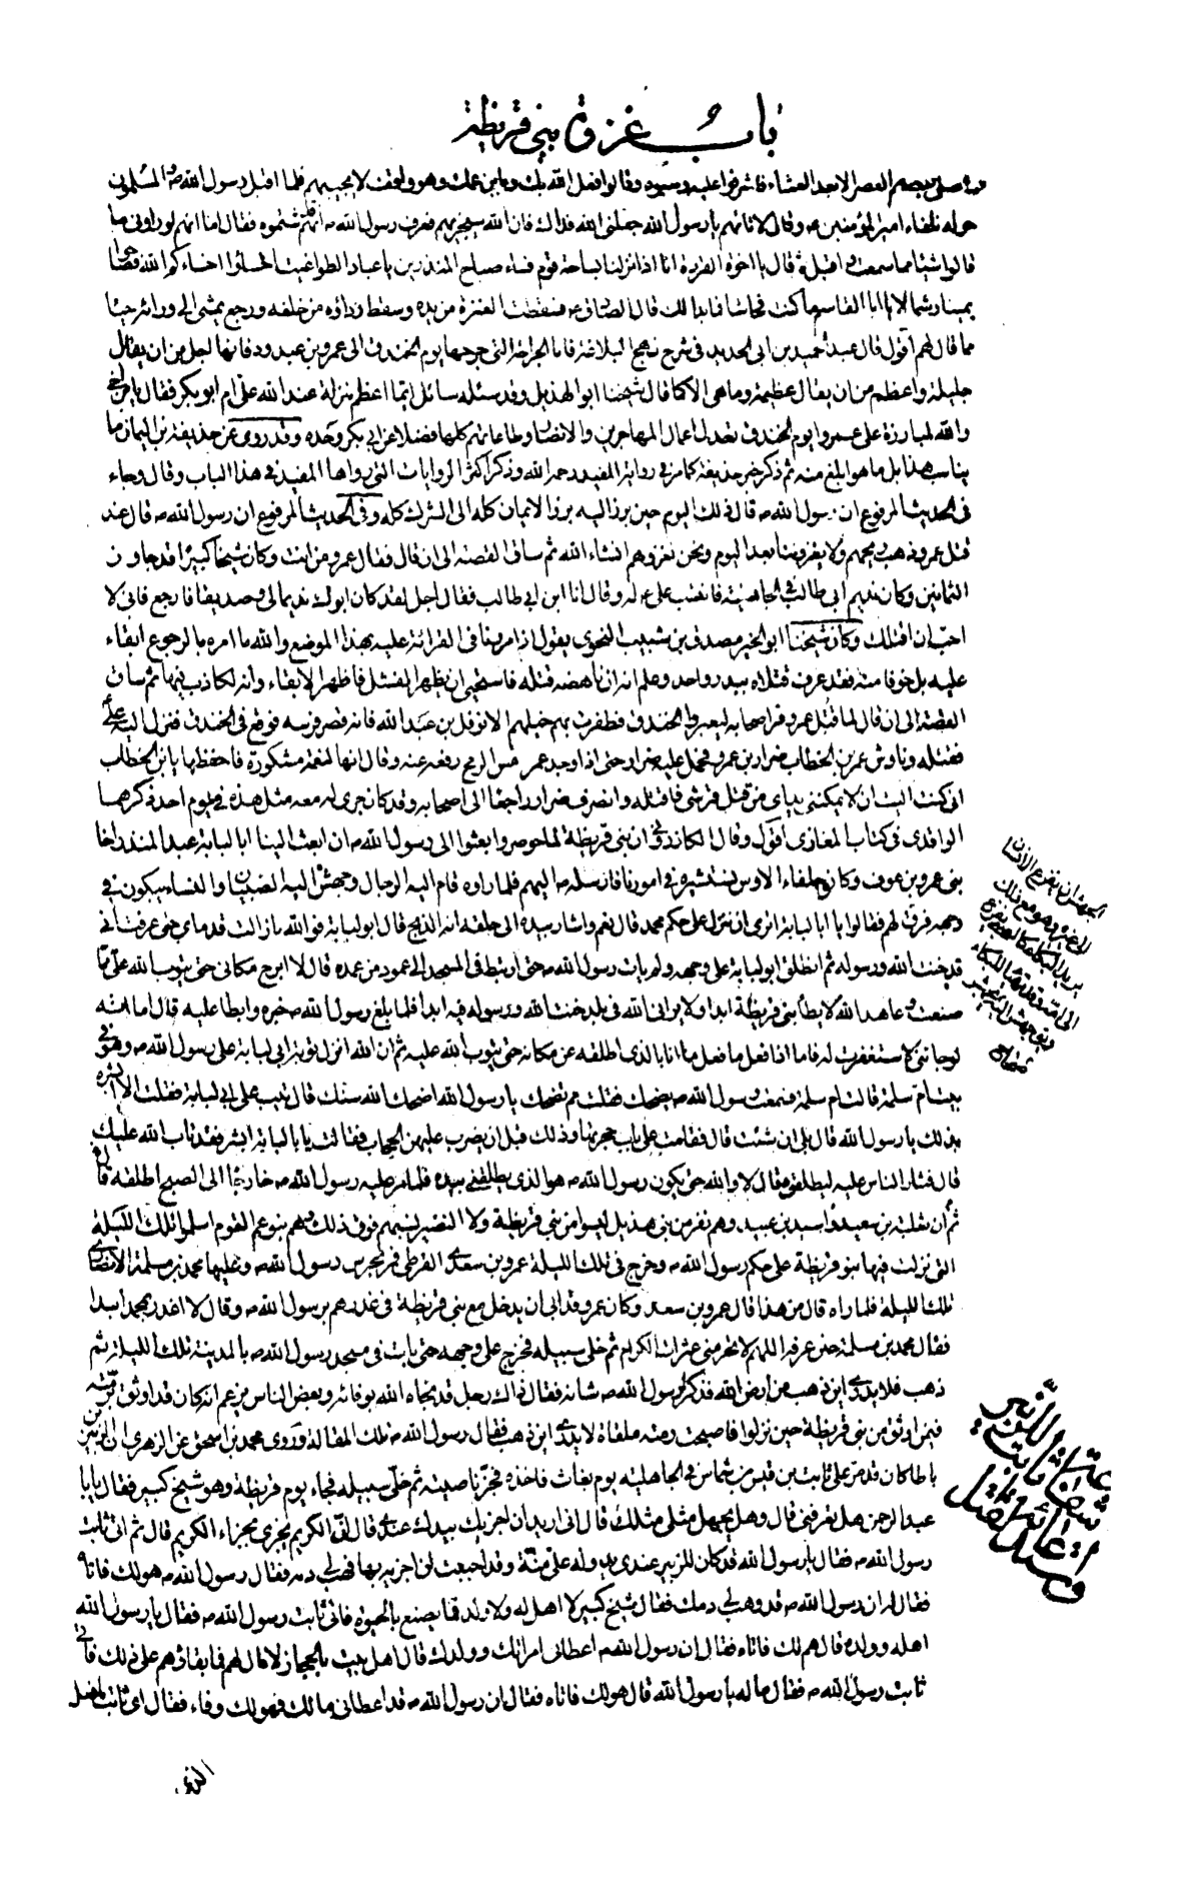 باب غزوة بني قريظة
العصر الا بعد العشاء فاشرفوا عليه وسبوه وقالوا فعل الله بك وبابن عمك وهو واقف لا يجيبهم فلما اقبل رسول الله ص والمسلمون
حوله تلقاه امير المؤمنين ع وقال لا تاتهم يا رسول الله جعلني الله فداك فان الله سيجزيهم فعرف رسول الله ص انهم قد شتموه فقال اما انهم لو راوني ما
قالوا شيئا مما سمعت واقبل ثم قال يا اخوة القردة انا اذا نزلنا بساحة قوم فساء صباح المنذرين يا عباد الطواغيت اخسئوا اخساكم الله فصاحوا
يمينا وشمالا يا ابا القاسم ما كنت فحاشا فما بدا لك قال الصادق ع فسقطت العنزة من يده وسقط رداؤه من خلفه ورجع يمشي الى ورائه حياء
مما قال لهم اقول قال عبد الحميد بن ابي الحديد في شرح نهج البلاغة فاما الجراحة التي جرحها يوم الخندق الى عمرو بن عبد ود فانها اجل من ان يقال
جليلة واعظم من ان يقال عظيمة وما هي الا كما قال شيخنا ابو الهذيل وقد سئله سائل ايما اعظم منزلة عند الله علي ام ابو بكر فقال يابن اخي
والله لمبارزة علي عمروا يوم الخندق تعدل اعمال المهاجرين والانصار وطاعاتهم كلها فضلا عن ابي بكر وحده وقد روي عن حذيفة بن اليمان ما
يناسب هذا بل ما هو ابلغ منه ثم ذكر خبر حذيفة كما مر في رواية المفيد رحمه الله وذكر اكثر الروايات التي رواها المفيد في هذا الباب وقال وجاء
في الحديث المرفوع ان رسول الله ص قال ذلك اليوم حين برز اليه برز الايمان كله الى الشرك كله وفي الحديث المرفوع ان رسول الله ص قال عند
قتل عمرو ذهب ريحهم ولا يغزوننا بعد اليوم ونحن نغزوهم انشاء الله ثم ساق القصة الى ان قال فقال عمرو من انت وكان شيخا كبيرا قد جاوز
الثمانين وكان نديم ابي طالب في الجاهلية فانتسب علي ع له وقال انا ابن ابي طالب فقال اجل لقد كان ابوك نديما لي وصديقا فارجع فاني لا
احب ان اقتلك وكان شيخنا ابو الخير مصدق بن شبيب النحوي يقول اذا مررنا في القرائة عليه بهذا الموضع والله ما امره بالرجوع ابقاء
عليه بل خوفا منه فقد عرف قتلاه ببدر واحد وعلم انه ان ناهضه قتله فاستحيى ان يظهر الفشل فاظهر الابقاء وانه لكاذب فيها ثم ساق
القصة الى ان قال لما قتل عمرو فر اصحابه ليعبروا الخندق فطفرت بهم خيلهم الا نوفل بن عبد الله فانه قصر فرسه فوقع في الخندق فنزل اليه علي
فقتله وناوش عمر بن الخطاب ضرار بن عمرو فحمل عليه ضرار حتى اذا وجد عمر مس الرمح رفعه عنه وقال انها لنعمة مشكورة فاحفظها يابن الخطاب
اني كنت اليت ان لا يمكنني يداي من قتل قرشي فاقتله وانصرف ضرار راجعا الى اصحابه وقد كان جرى له معه مثل هذه في يوم احد ذكرها
الواقدي في كتاب المغازي اقول وقال الكازروني ان بني قريظة لما حوصروا بعثوا الى رسول الله ص ان ابعث الينا ابا لبابة عبد المنذر اخا
بني عمرو بن عوف وكان حلفاء الاوس نستشيره في امورنا فارسله ص اليهم فلما راوه قام اليه الرجال وجهش اليه الصبيان والنساء يبكون في
وجهه فرق لهم فقالوا يا ابا لبابة اترى ان ننزل على حكم محمد قال نعم واشار بيده الى حلقه انه الذبح قال ابو لبابة فوالله ما زالت قدماي حتى عرفت اني
قد خنت الله ورسوله ثم انطلق ابو لبابة على وجهه ولم يات رسول الله ص حتى ارتبط في المسجد الى عمود من عمده قال لا ابرح مكاني حتى يتوب الله علي مما
صنعت وعاهد الله لا يطأ بني قريظة ابدا ولا يراني الله في بلد خنت الله ورسوله فيه ابدا فلما بلغ رسول الله ص خبره وابطا عليه قال اما انه
لو جائني لاستغفرت له فاما اذا فعل ما فعل ما انا بالذي اطلقه عن مكانه حتى يتوب الله عليه ثم ان الله انزل توبة ابي لبابة على رسول الله ص وهو في
بيت ام سلمة قالت ام سلمة فسمعت رسول الله ص يضحك فقلت مم تضحك يا رسول الله اضحك الله سنك قال تيب على ابي لبابة فقلت الا ابشره
بذلك يا رسول الله قال بلى ان شئت قال فقامت على باب حجرتها وذلك قبل ان يضرب عليهن الحجاب فقالت يا ابا لبابة ابشر فقد تاب الله عليك
قال فثار الناس عليه ليطلقوه فقال لا والله حتى يكون رسول الله ص هو الذي يطلقني بيده فلما مر عليه رسول الله ص خارجا الى الصبح اطلقه قال
ثم ان ثعلبة بن سعيد واسيد بن عبيد وهم نفر من بني هذيل ليسوا من بني قريظة ولا النضير نسبهم فوق ذلك وهم بنو عم القوم اسلموا تلك الليلة
التي نزلت فيها بنو قريظة على حكم رسول الله ص وخرج في تلك الليلة عمرو بن سعدى القرظي فمر بحرس رسول الله ص وعليها محمد بن مسلمة الانصاري
تلك الليلة فلما راه قال من هذا قال عمرو بن سعد وكان عمرو قد ابى ان يدخل مع بني قريظة في غدرهم برسول الله ص وقال لا اغدر بمحمد ابدا
فقال محمد بن مسلمة حين عرفه اللهم لا تحرمني عثرات الكرام ثم خلى سبيله فخرج على وجهه حتى بات في مسجد رسول الله ص بالمدينة تلك الليلة ثم
ذهب فلا يدرى اين ذهب من ارض الله فذكر لرسول الله ص شانه فقال ذاك رجل قد نجاه الله بوفائه وبعض الناس يزعم انه كان قد اوثق برمة
فيمن اوثق من بني قريظة حين نزلوا فاصبحت رمته ملقاة لا يدرى اين ذهب فقال رسول الله ص تلك المقالة وروى محمد بن اسحق عن الزهري ان الزبير بن
باطا كان قد من على ثابت بن قيس بن شماس في الجاهلية يوم بغاث فاخذه فجز ناصيته ثم خلى سبيله فجاء يوم قريظة وهو شيخ كبير فقال يا ابا
عبد الرحمن هل تعرفني قال وهل يجهل مثلي مثلك قال اني اريد ان اجزيك بيدك عندي قال ان الكريم يجزي بجزاء الكريم قال ثم اتى ثابت
رسول الله ص فقال يا رسول الله قد كان للزبير عندي يد وله علي منة وقد احببت ان اجزيه بها فهب لي دمه فقال رسول الله ص هو لك فاتاه
فقال له ان رسول الله ص قد وهب لي دمك فقال شيخ كبير لا اهل له ولا ولد فما يصنع بالحيوة فاتى ثابت رسول الله ص فقال يا رسول الله
اهله وولده قال هم لك فاتاه فقال ان رسول الله ص اعطاني امراتك وولدك قال اهل بيت بالحجاز لا مال لهم فما بقاؤهم على ذلك فاتى
ثابت رسول الله ص فقال ما له يا رسول الله قال هو لك فاتاه فقال ان رسول الله ص قد اعطاني مالك فهو لك وفاء فقال اي ثابت ما فعل
الذي
الجهش ان يفزع الانسان
الى غيره وهو مع ذلك
يريد البكاء كالصبي يفزع
الى امه وقد تهيأ للبكاء